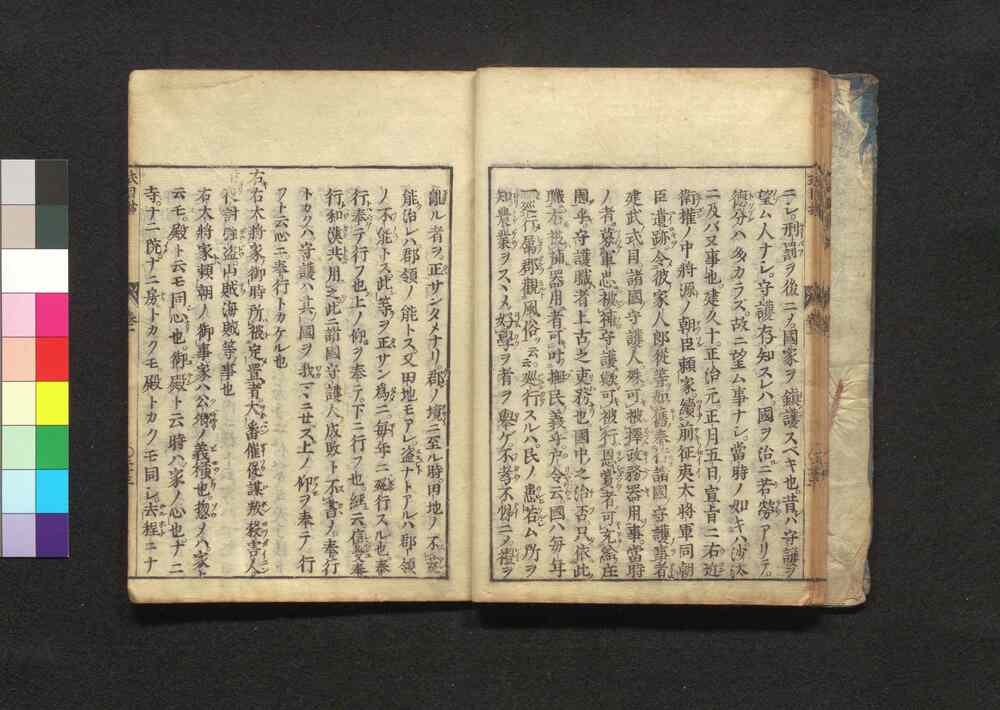 ニシ刑罰ヲ後ニメ。國家ヲ鎮護スベキ也昔ハ守護ヲ
望ム人ナシ。守護存知スレハ國ヲ治ニ若勞アリテ。
德分ハ多カラズ。故ニ望ム事ナシ。當時ノ如キハ沙汰
ニ及バヌ事也建久十。正治元正月五日宣旨ニ右近
衛權ノ中將源ノ朝臣頼家續前征夷大將軍同朝
臣遺跡令彼家人郎從等如舊奉行諸國守護事者
建武式目諸國守護人殊可被擇政務器用事當時
ノ者募軍忠被補守護歟可被行恩賞者可充給庄
園乎守護職者上古之吏務也國中之治否只依此
職尤被補器用者可叶撫民義乎戸令云國ハ毎年
一巡行屬郡觀風俗云云巡行スルハ民ノ患苦ム所ヲ
知農業ヲスヽメ好學ヲ者ヲ舉ゲ不孝不悌ニメ禮ヲ
亂ル者ヲ正サンタメナリ郡ノ境ニ至ル時。田地ノ不
能治レハ郡領ノ能トス又田地モアレ盗ナトアルハ郡領
ノ不能トス此等ヲ正サン爲ニ。毎年ニ巡行スル也奉
行奉テ行フ也上ノ仰ヲ奉テ下ニ行フ也經云信受奉
行和漢共用之此ニ諸國守護人成敗ト不書ノ奉行
トカクハ守護ハ其ノ國ヲ我マヽニセズ上ノ仰ヲ奉テ行
フト云心ニ奉行トカケル也
右右大將家御時所被定置者大番催促謀叛殺害人
付夜討強盗山賊海賊等ノ事也
右大將家頼朝ノ御事家ハ公卿ノ義種也惣ノハ家ト
云モ。殿ト云モ同心也。御殿ト云時ハ家ノ心也ナニ
寺。ナニ院ナニ房トカクモ殿トカクモ同シ去程ニナ